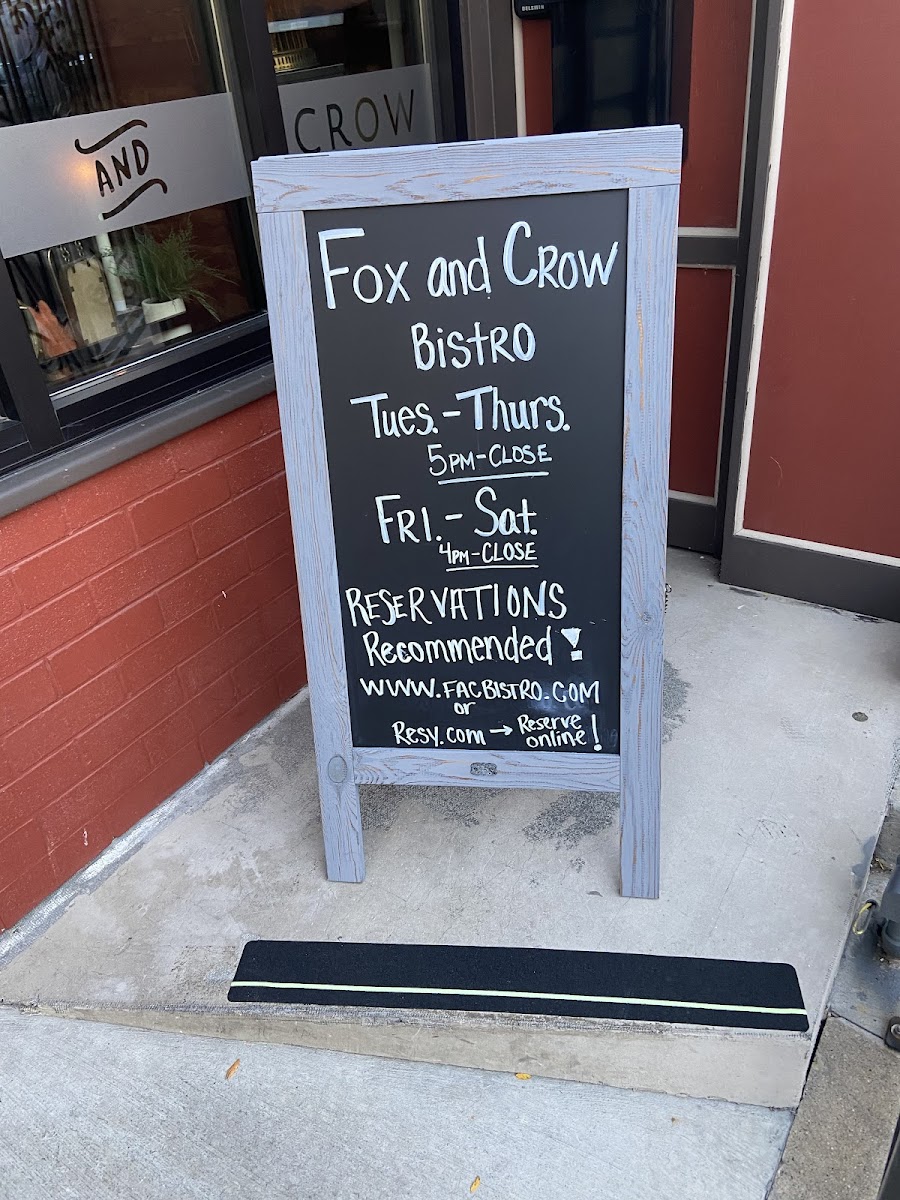 BELKNIP
AND
CROW
Fox and Crow
Bistro
Tues.-Thurs.
5pm-Close
Fri.-Sat.
4pm-Close
Reservations
Recommended!
www.facbistro.com
or
Resy.com → Reserve
online!